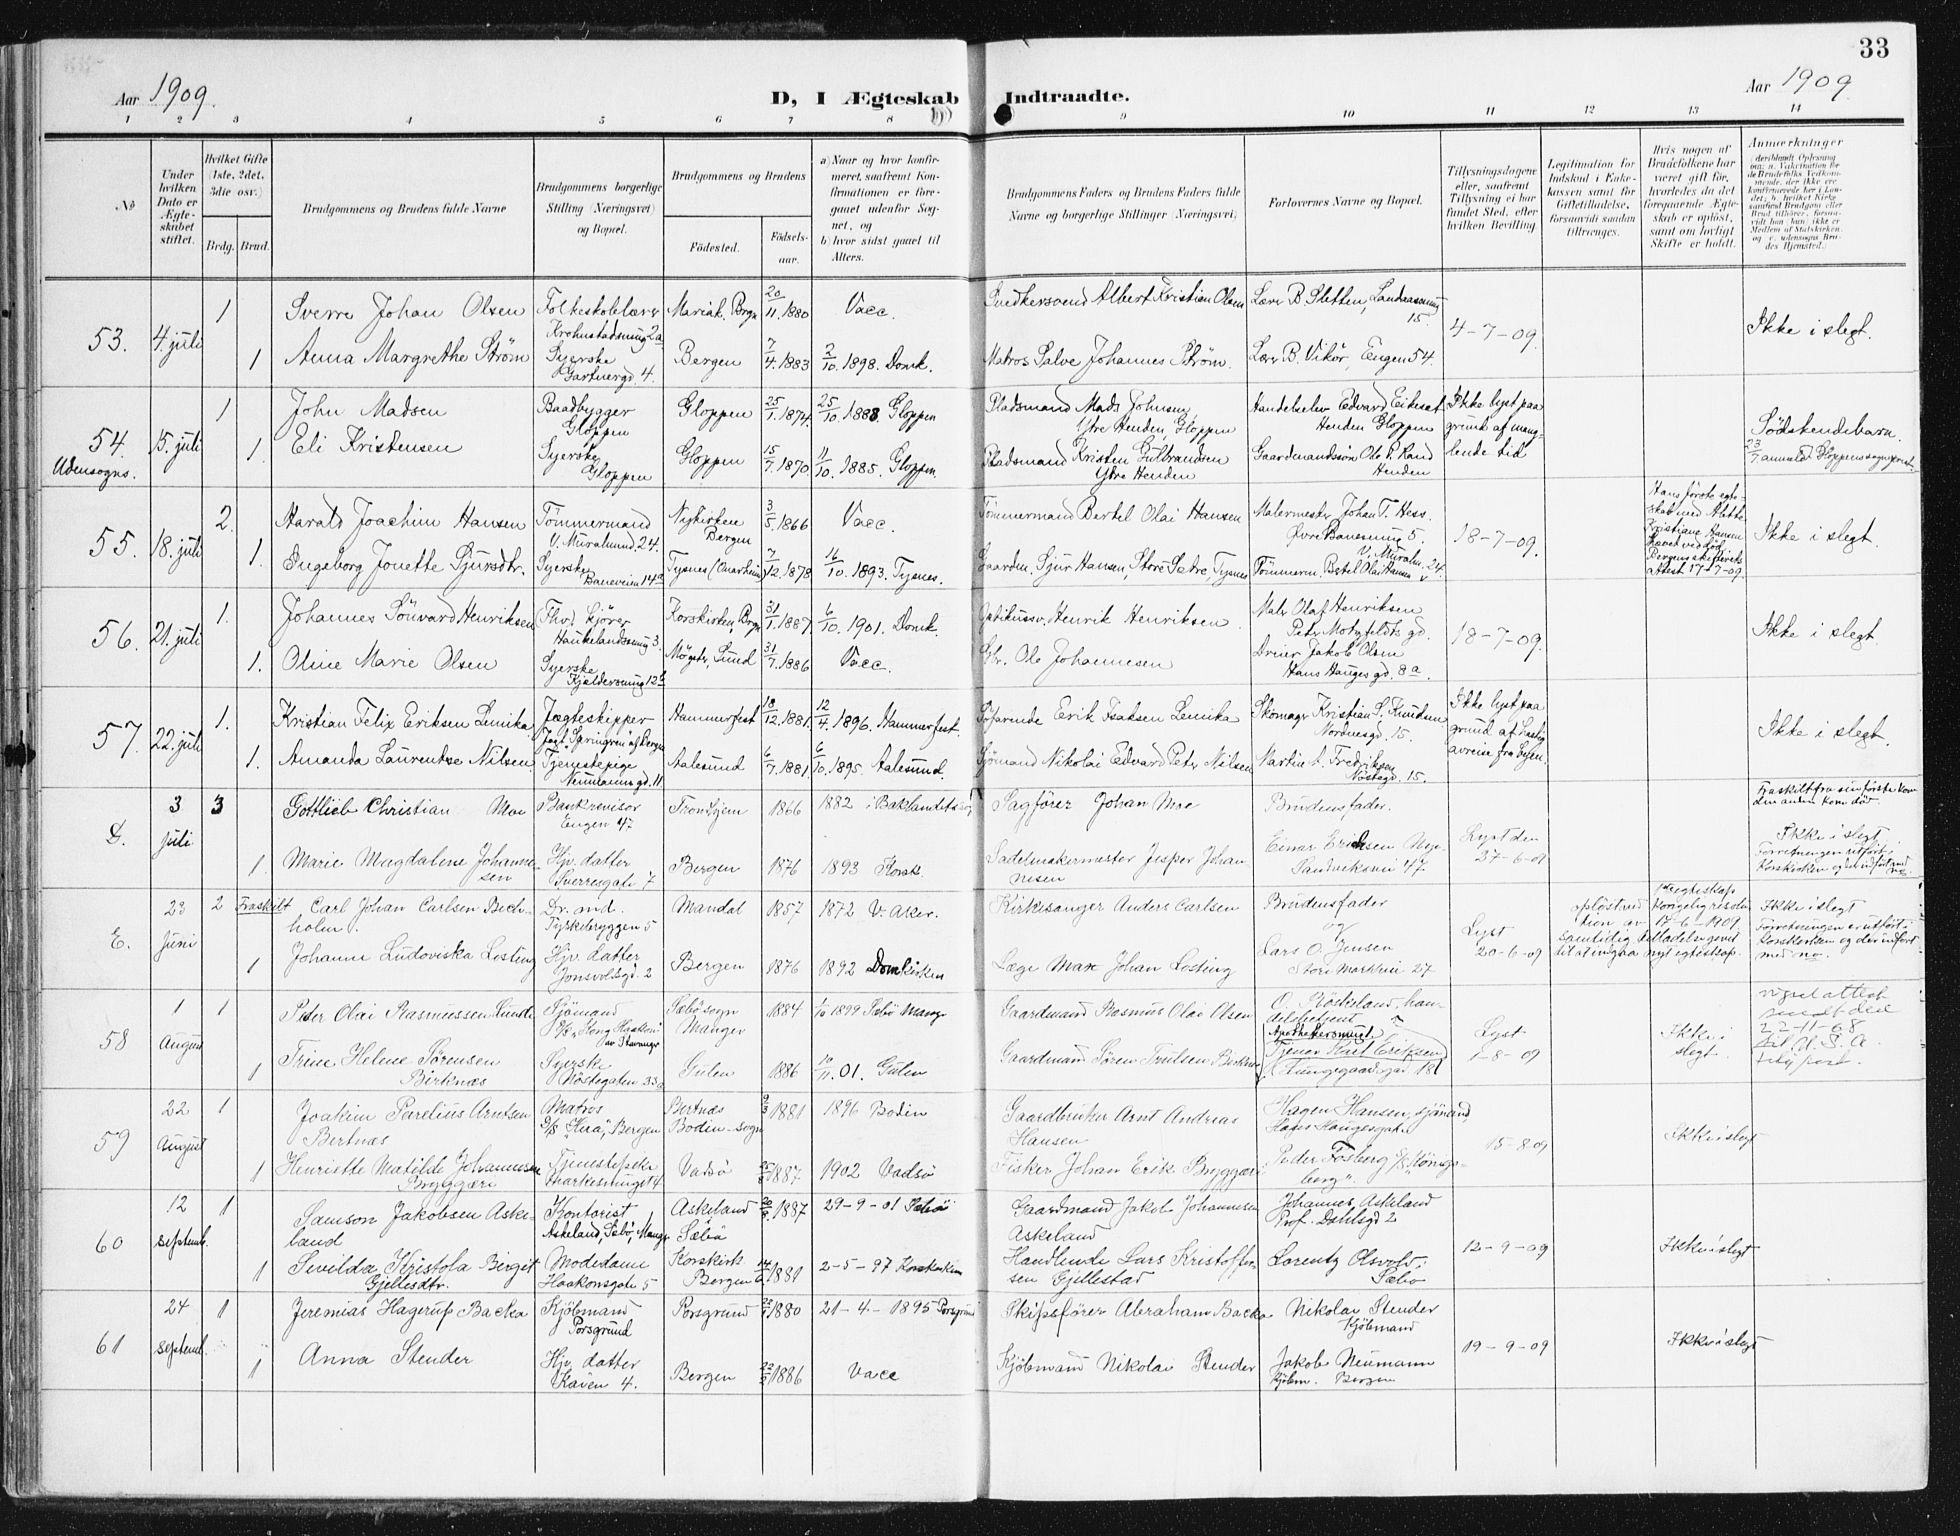 33
Aar 1909.
D, I Ægteskab Indtraadte.
Aar 1909.
1 2 3 4 5 6 7 8 9 10 11 12 13 14
No
Under hvilken Dato er Ægteskabet stiftet.
Hvilket Gifte (1ste, 2det, 3die osv.)
Brdg. Brud.
Brudgommens og Brudens fulde Navne
Brudgommens borgerlige Stilling (Næringsvei) og Bopæl.
Brudgommens og Brudens
Fødested.
Fødselsaar.
a) Naar og hvor konfirmeret, saafremt Konfirmationen er foregaaet udenfor Sognet, og
b) hvor sidst gaaet til Alters.
Brudgommens Faders og Brudens Faders fulde Navne og borgerlige Stillinger (Næringsvei)
Forlovernes Navne og Bopæl.
Tillysningsdagene eller, saafremt Tillysning ei har fundet Sted, efter hvilken Bevilling.
Legitimation for Indskud i Enkekassen samt for Giftetilladelse, forsaavidt saadan tiltrænges.
Hvis nogen af Brudefolkene har været gift før, hvorledes da det foregaaende Ægteskab er opløst, samt om lovligt Skifte er holdt.
Anmærkninger
53. 4. juli 1 Sverre Johan Olsen Folkeskolelærer Krohnstadsmug 2a Mariak. Brgn 20/11 1880 Vacc. Snedkersvend Albert Kristian Olsen Lærer B. Sletten, Landaasmug 15. 4-7-09. Ikke i slegt.
1 Anna Margrethe Strøm Syerske Gartnergd. 4. Bergen 7/4 1883 2/10 1898. Domk. Matros Salve Johannes Strøm. Lærer B. Vikør, Engen 54.
54. Udensogns. 15. juli 1 John Madsen Baadbygger Gloppen Gloppen 25/1 1874. 25/10 1888 Gloppen Pladsmand Mads Johnsen, Ytre Henden, Gloppen Handelselev Edvard Eikeset Henden Gloppen Ikke lyst paa grund af manglende tid Sødskendebarn.
1. Eli Kristensen Syerske Gloppen Gloppen 15/7 1870 11/10 1885. Gloppen. Pladsmand Kristen Gulbrandsen Ytre Henden Gaardmandssøn Ole P. Rand Henden 23/7 anmeldt Gloppens sogneprest.
55. 18. juli 2. Harald Joachim Hansen Tømmermand V. Muralmd. 24. Nykirken Bergen 3/5 1866 Vacc. Tømmermand Bertel Olai Hansen Malermester Johan T. Hess. Øvre Banesmug 5. 18-7-09. Hans første egteskab med Alette Kristiane Hansen hævet ved død Bergens skifteretts attest 17-7-09 Ikke i slegt.
1. Ingeborg Jonette Sjursdtr. Syerske Baneveien 14a Tysnes (Onarheim) 7/12 1878 16/10 1893. Tysnes. Gaardm. Sjur Hansen, Store Sætre, Tysnes Tømmerm. Bertel Olai Hansen V. Muralm. 24.
56. 21. juli 1. Johannes Sönvard Henriksen Thod. kjører Haukelandsmug 3. Korskirken, Brgn 31/1 1887 6/10 1901. Domk. Henrik Henriksen. Maler Olaf Henriksen Peter Motzfeldts gd. 18-7-09. Ikke i slegt.
1. Oline Marie Olsen Syerske Kjeldersmug 12b Møgster, Sund 31/7 1886 Vacc. Gbr. Ole Johannesen Dreier Jakob Olsen Hans Hauges gd. 8a.
57. 22. juli 1. Kristian Felix Eriksen Lemika Jægteskipper Jagt "Springeren" af Bergen Hammerfest 18/12 1881. 12/4 1896. Hammerfest. Søfarende Erik Isaksen Lemika Skomager Kristian S. Knudsen Nordnesgd. 15. Ikke lyst paa grund af hastig avreise fra byen. Ikke i slegt.
1. Amanda Laurentse Nilsen Tjenestepige Neumanns gd. 11. Aalesund 6/7 1881 6/10 1895. Aalesund. Sjømand Nikolai Edvard Peter Nilsen Martin A. Fredriksen Nøstegd. 15.
D. 3 juli 3 Gottlieb Christian Moe Bankrevisor Engen 47 Trondhjem 1866 1882 i Baklandets Sagfører Johan Moe Brudens fader. Lyst den 27-6-09 Fraskilt fra sin første kone den anden kone død.
1 Marie Magdalene Johannesen Hjv. datter Sverresgate 7 Bergen 1876 1893 Korsk. Sadelmakermester Jesper Johannesen Einar Ericksen Mye Sandviksvei 47 Ikke i slegt Forretningen utført i Korskirken og der indført med no
E. 23 juni 2 Fraskilt Carl Johan Carlsen Buchholm. Dr. md. Tyskebryggen 5 Mandal 1857 1872 V. Aker. Kirkesanger Anders Carlsen Brudens fader og Lyst 20-6-09 1ste egteskap opløst ved kongelig resolution av 17-6-1909 samtidig tilladelse givet til at indgaa nyt egteskap. Ikke i slegt Forretningen er utført i Korskirken og der indført med no.
1 Johanne Ludoviska Losting Hjv. datter Jonsvoldsgd. 2 Bergen 1876 1892 Domkirken Læge Max Johan Losting Lars O. Jensen Store Markevei 27
58 1 August 1 Peder Olai Rasmussen Lunde Sjömand D/S "Kong Haakon" av Stavanger Sæbö sogn Manger 1884 1/10 1899 Sæbö Mangr Gaardmand Rasmus Olai Olsen O. Röskeland, handelsbetjent Apothekersmugt. Lyst 1-8-09 Ikke i slegt. vigselattest sendt den 22-11-08 til
1 Trine Helene Sørensen Birknæs Syerske Nöstegaten 33a Gulen 1886 10/11 01. Gulen Gaardmand Sören Trulsen Birknæs Tjener Karl Eriksen Lungegaardsgad 18b
59 22 August 1 Joakim Parelius Arntsen Bertnæs Matros D/S "Hera", Bergen Bertnæs Bodin-sogn 9/3 1881 1896 Bodin Gaardbruker Arnt Andreas Hansen Hagen Hansen, sjömand, Hans Haugesgate 15-8-09 Ikke i slegt
1 Henriette Matilde Johannesen Bryggæri Tjenestepike Markesmuget 4 Vadsö 25/8 1887 1902 Vadsö Fisker Johan Erik Bryggæri Peder Fosberg D/S "Königsberg".
60 12 septemb. 1 Samson Jakobsen Askeland Kontorist Askeland, Sæbö, Mangr Askeland Sæbö 20/9 1887 29-9-01 Sæbö Gaardmand Jakob Johannesen Askeland Johannes Askeland Prof. Dahlsgd 2 12-9-09 Ikke i slegt
1 Sevilda Kristola Birgit Gjellesdtr. Modedame Haakonsgate 5 Korskirk. Bergen 14/6 1881 2-5-97 Korskirken Handlende Lars Kristoffersen Gjellestad Lorentz Olsvold, Sæbø
61 24 septemb. 1 Jeremias Hagerup Backa Kjöbmand Porsgrund Porsgrund 22/1 1880 21-4-1895 Porsgrund Skipsfører Abraham Backa Nikolai Stender Kjöbmand 19-9-09 Ikke i slegt
1 Anna Stender Hjv. datter Kaien 4. Bergen 22/2 1886 Vacc Kjöbmand Nikolai Stender Jakob Neumann Kjöbm. Bergen